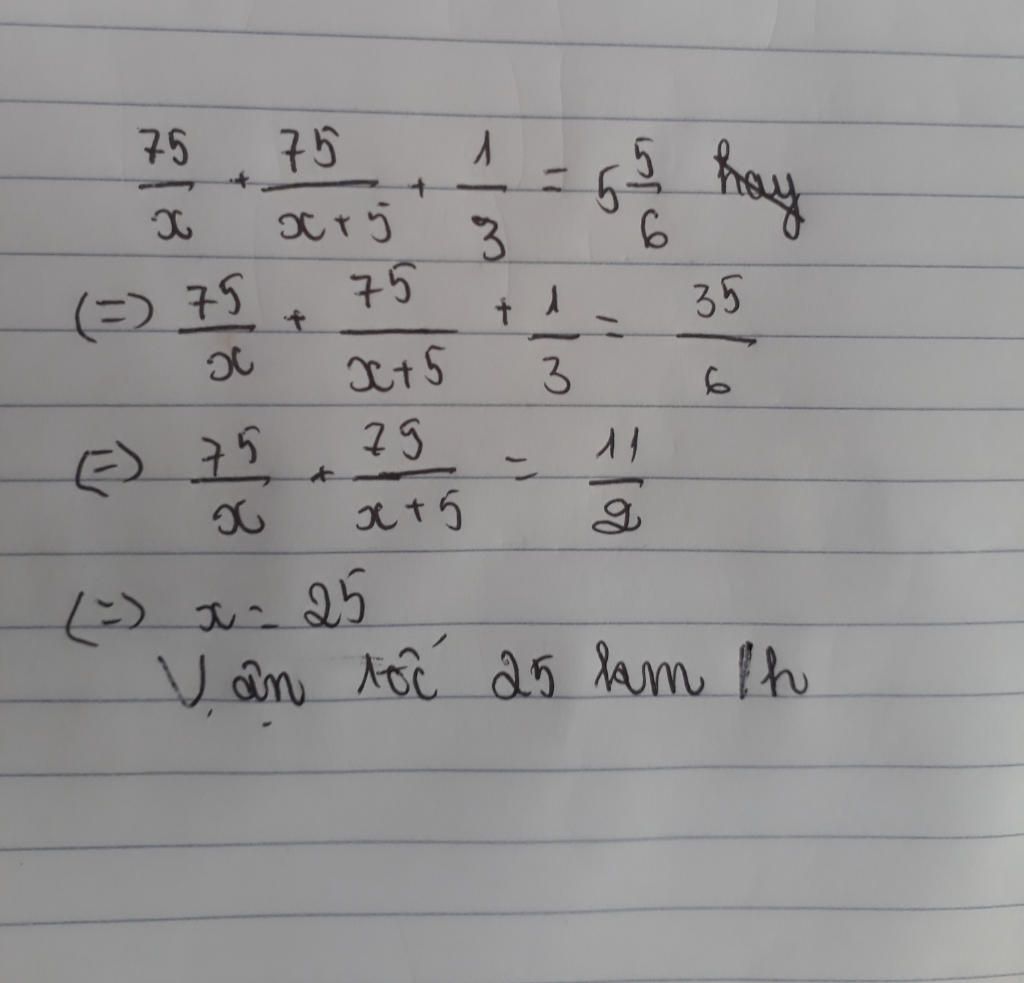 75/x + 75/(x+5) + 1/3 = 5 5/6 hay
(=) 75/x + 75/(x+5) + 1/3 = 35/6
(=) 75/x + 75/(x+5) = 11/2
(=) x = 25
Vận tốc 25 km/h